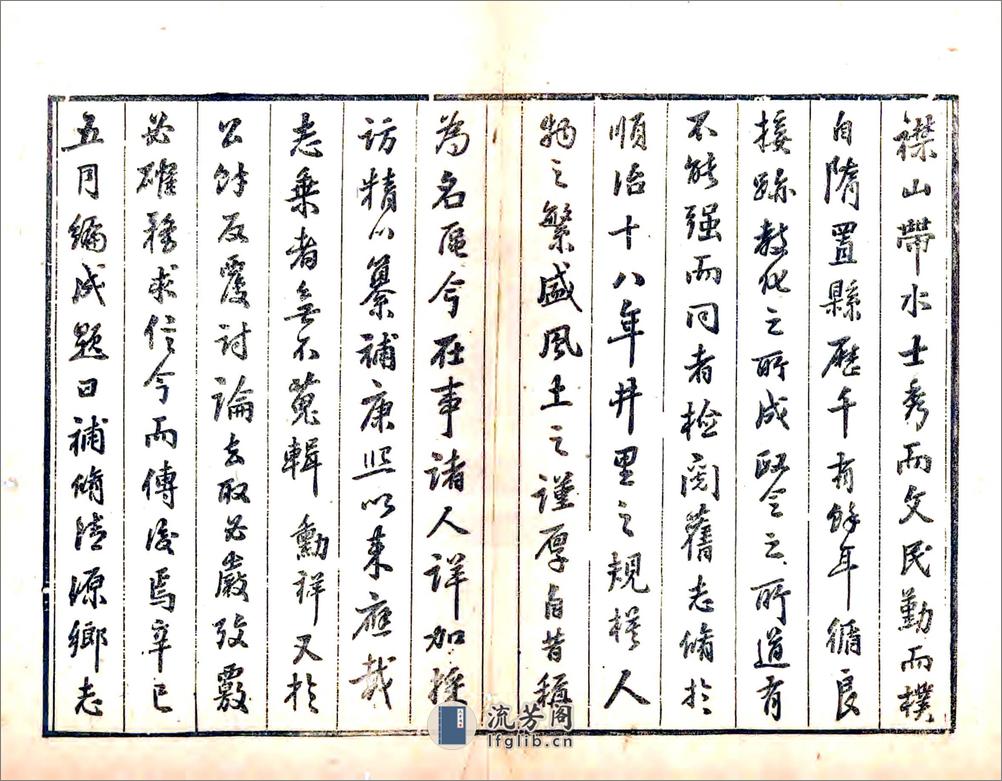 襟山帶水士秀而文民勤而樸
自隋置縣歷千有餘年循良
接跡教化之所成政令之所道有
不能强而同者檢閱舊志脩於
順治十八年井里之規模人
物之繁盛風土之謹厚自昔稱
為名區今在事諸人詳加採
訪精以纂補康熙以來應載
志乘者無不蒐輯勳祥又於
公餘反覆討論去取必嚴攷覈
必確務求信今而傳後焉辛巳
五月編成題曰補脩清源鄉志
流芳阁
lfglib.cn